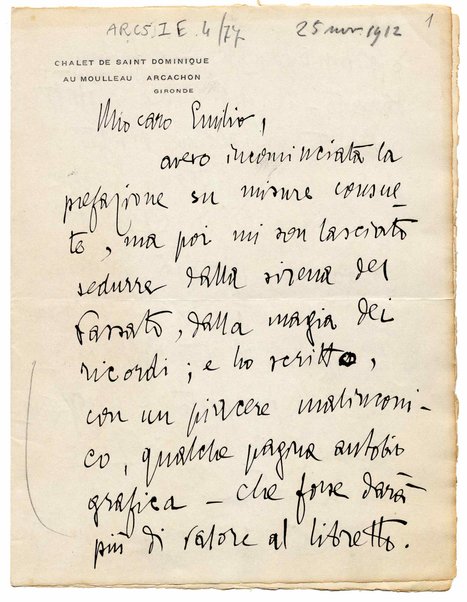 ARC(5) I E. 4/77 25 nov. 1912 1
CHALET DE SAINT DOMINIQUE
AU MOULLEAU ARCACHON
GIRONDE
Mio caro Emilio,
avevo incominciata la
prefazione su misure consue-
te, ma poi mi son lasciato
sedurre dalla sirena del
Passato, dalla magia dei
ricordi; e ho scritto,
con un piacere malinconi-
co, qualche pagina autobio
grafica – che forse darà
più di valore al libretto.